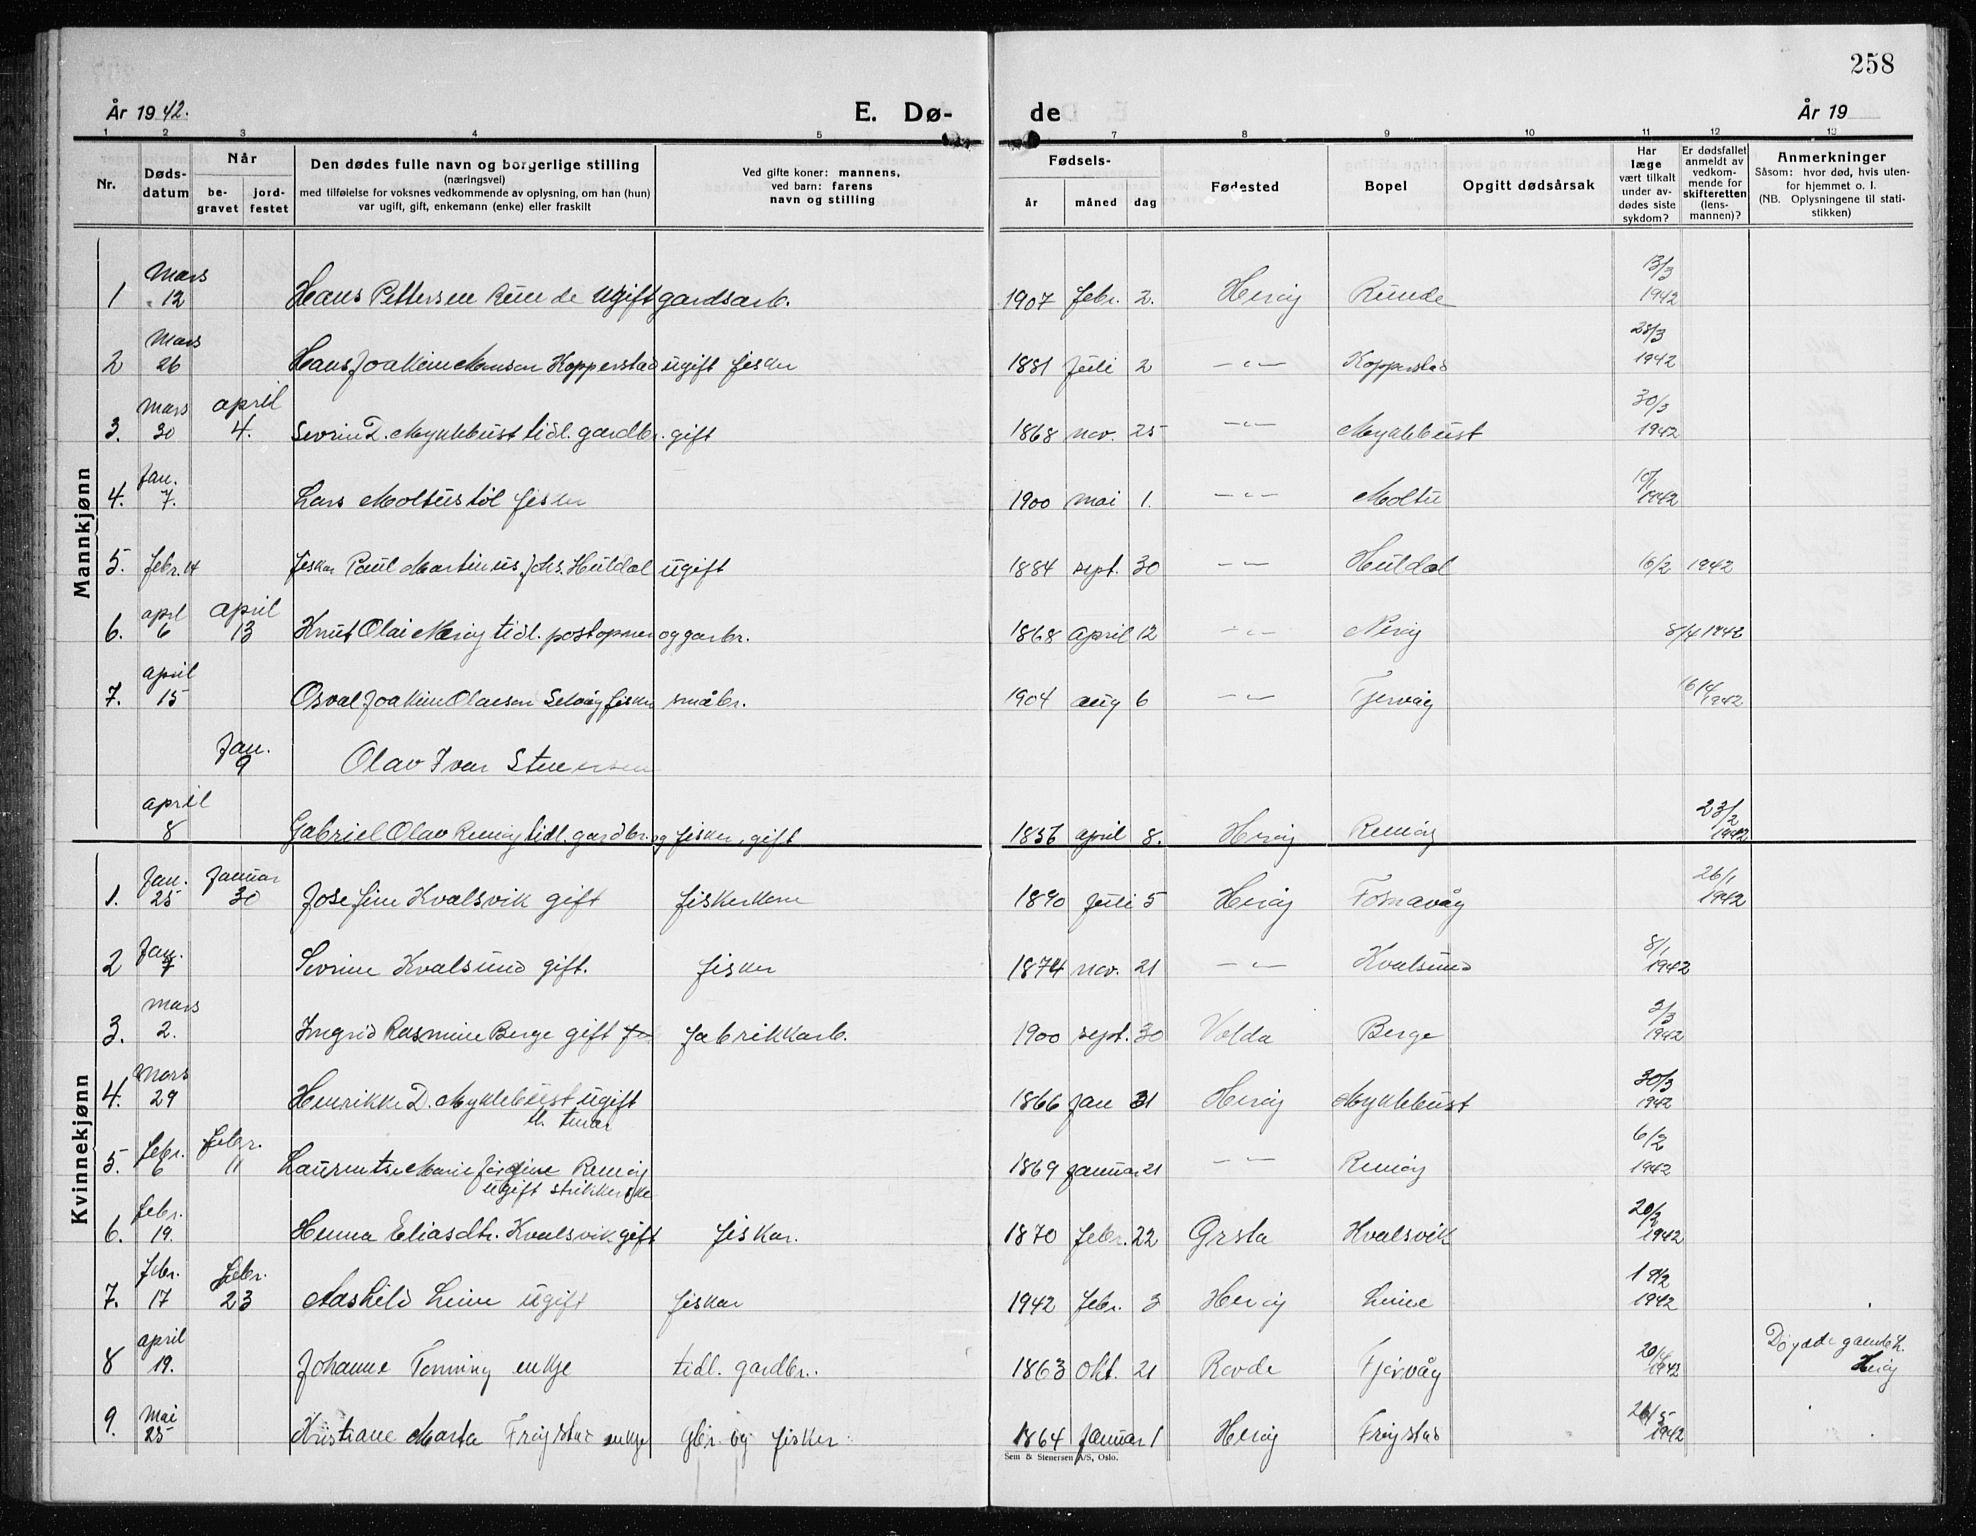 258
År 1942.
E. Dø-
de
År 19
1 2 3 4 5 7 8 9 10 11 12 13
Nr.
Døds-
datum
Når
be-
gravet
jord-
festet
Den dødes fulle navn og borgerlige stilling
(næringsvei)
med tilføielse for voksnes vedkommende av oplysning, om han (hun)
var ugift, gift, enkemann (enke) eller fraskilt
Ved gifte koner: mannens,
ved barn: farens
navn og stilling
Fødsels-
år måned dag
Fødested
Bopel
Opgitt dødsårsak
Har
læge
vært tilkalt
under av-
dødes siste
sykdom?
Er dødsfallet
anmeldt av
vedkom-
mende for
skifteretten
(lens-
mannen)?
Anmerkninger
Såsom: hvor død, hvis uten-
for hjemmet o. l.
(NB. Oplysningene til stati-
stikken)
Mannkjønn
1 Mars 12 Hans Pettersen Runde ugift gardsarb. 1907 febr. 2. Herøy Runde 13/3 1942
2 Mars 26 Hans Joakim Monsen Kopperstad ugift fisker 1881 Juli 2 -"- Kopperstad 28/3 1942
3. Mars 30 april 4. Sevrin D. Myklebust tidl. gardbr. gift 1868 nov. 25 -"- Myklebust 30/3 1942
4. Jan. 7. Lars Moltustøl fisker 1900 mai 1. -"- Moltu 10/1 1942
5. febr. 14 fisker Paul Martinus Johs. Huldal ugift 1884 sept. 30 -"- Huldal 16/2 1942
6. april 6 april 13 Knut Olai Nerøy tidl. postopner og garbr. 1868 april 12 -"- Nerøy 8/4 1942
7. april 15 Osval Joakim Olaesen Selvåg fisker småbr. 1904 aug 6 -"- Tjervåg 16/4 1942
Jan. 9 Olav Ivar
april 8 Gabriel Olav Remøy tidl. gardbr. og fisker, gift 1856 april 8. Herøy Remøy 23/2 1942
Kvinnekjønn
1. Jan. 25 Januar 30 Josefine Kvalsvik gift fiskerkone 1890 Juli 5 Herøy Fosnavåg 26/1 1942
2 Jan. 7 Sevrine Kvalsund gift. fisker 1874 nov. 21 -"- Kvalsund 8/1 1942
3. mars 2. Ingrid Rasmine Berge gift fabrikkarb. 1900 sept. 30 Volda Berge 3/3 1942
4. Mars 29 Henrikke D. Myklebust ugift 1866 Jan 31 Herøy Myklebust 30/3 1942
5. febr. 6 febr. 11 Laurentse Marie Remøy 1869 januar 21 -"- Remøy 6/2 1942
ugift strikkerske
6. febr. 19. Henna Eliasdtr. Kvalsvik gift fiskar. 1870 febr. 22 Ørsta Kvalsvik 20/2 1942
7. febr. 17 febr. 23 Aashild Leine ugift fiskar 1942 febr. 3 Herøy Leine 19/2 1942
8 april 19. Johanne Tonning enkje tidl. gardbr. 1863 okt. 21 Rovde Tjørvåg 20/4 1942 Døyde gamleh. Herøy
9. Mai 25 Kristiane Marta Frøystad enkje gbr. og fisker 1864 Januar 1 Herøy Frøystad 26/5 1942
Sem & Stenersen A/S, Oslo.